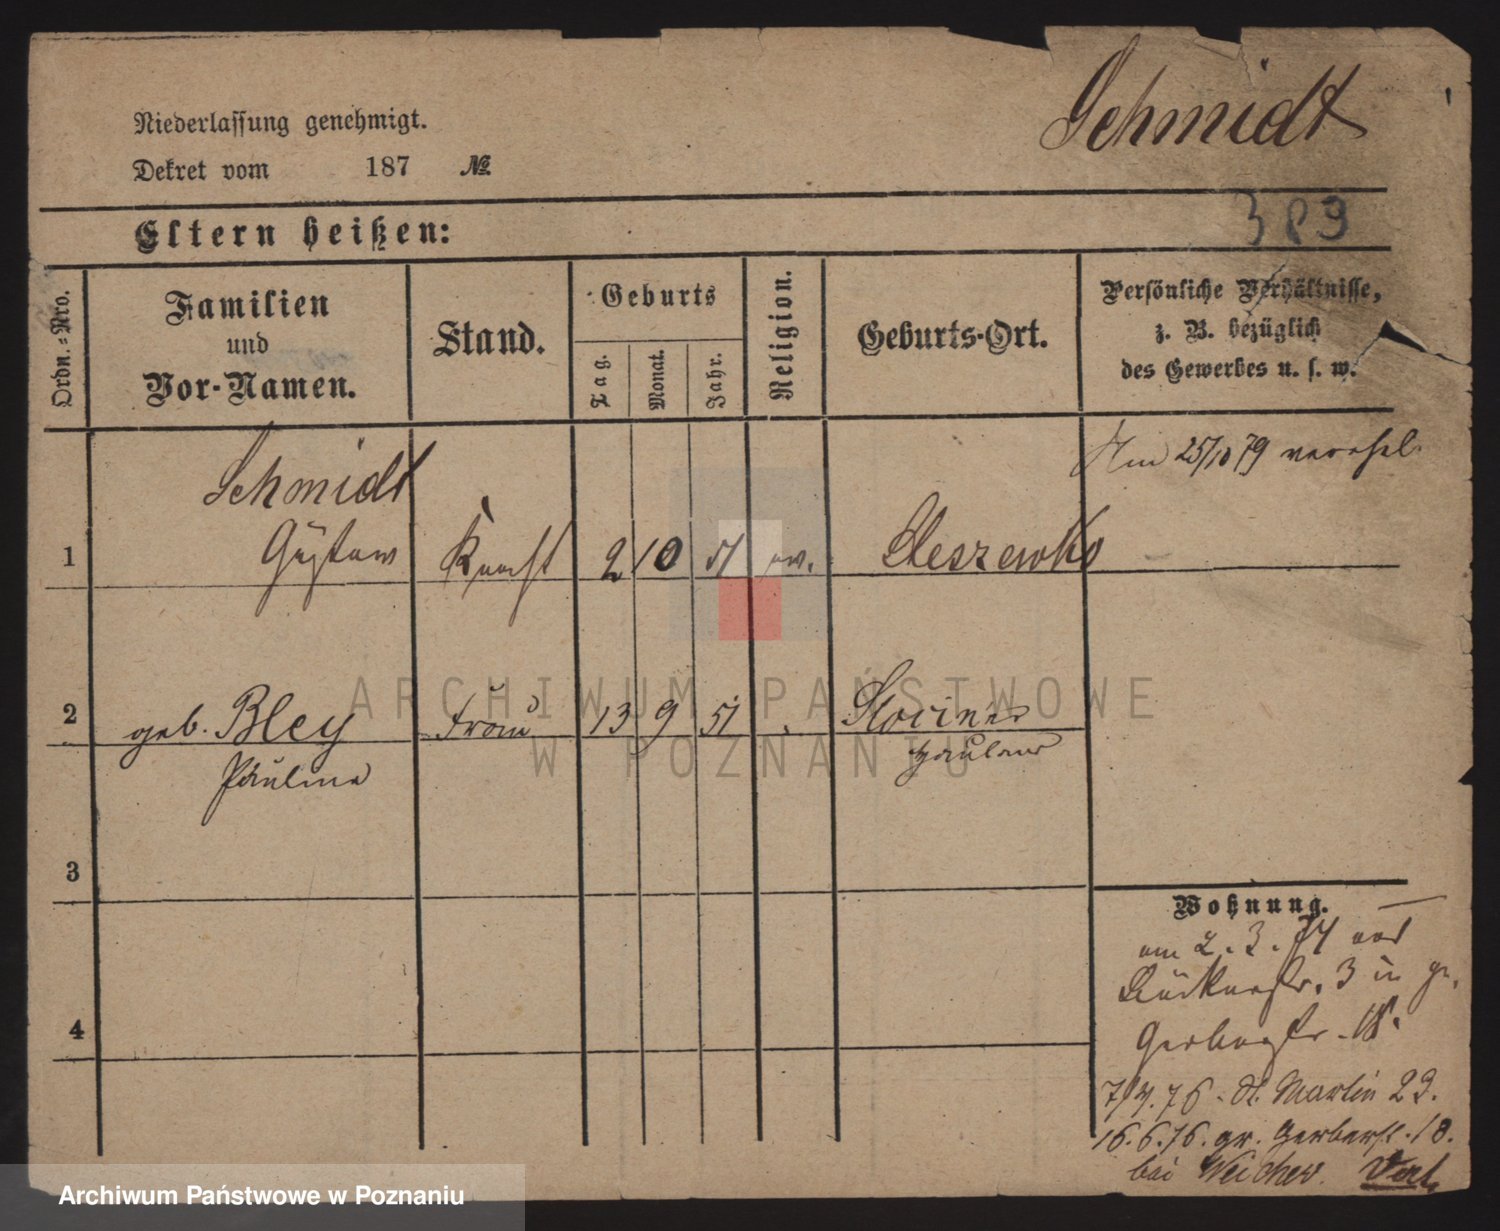 Schmidt
Niederlassung genehmigt.
Dekret vom 187 №
389
Eltern heißen:
Ordn.=Nro.
Familien
und
Vor-Namen.
Stand.
Geburts
Tag.
Monat.
Jahr.
Religion.
Geburts-Ort.
Persönliche Verhältnisse,
z. B. bezüglich
des Gewerbes u. s. w.
25/10 79
Schmidt
1 Gustaw Knecht 2 10 51 ev.
2 geb. Bley Frau 13 9 51
Pauline Hauland
3
4
Wohnung.
am 2. 3. 74
3 in gr.
Gerberstr. 18.
7/4. 76. St. Martin 23.
16. 6. 76. gr. Gerberst. 18.
bei Weicher.
ARCHIWUM PAŃSTWOWE
W POZNANIU
Archiwum Państwowe w Poznaniu